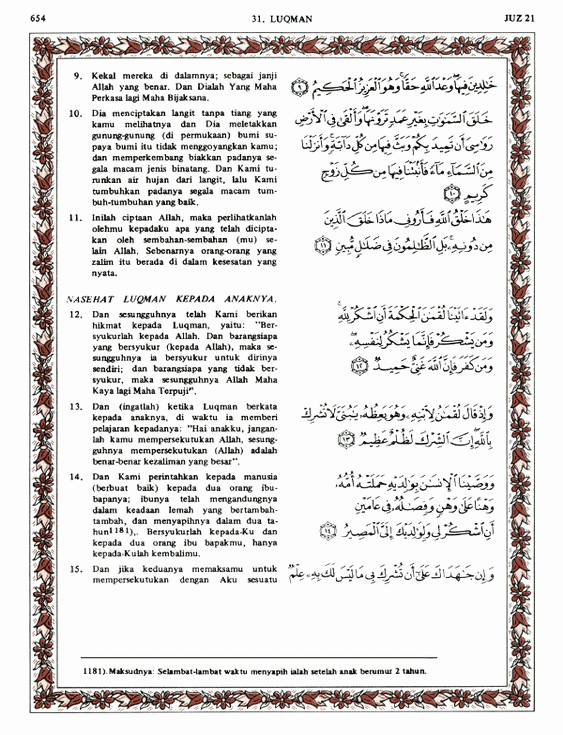 654
31. LUQMAN
JUZ 21
9. Kekal mereka di dalamnya; sebagai janji
Allah yang benar. Dan Dialah Yang Maha
Perkasa lagi Maha Bijaksana.
10. Dia menciptakan langit tanpa tiang yang
kamu melihatnya dan Dia meletakkan
gunung-gunung (di permukaan) bumi su-
paya bumi itu tidak menggoyangkan kamu;
dan memperkembang biakkan padanya se-
gala macam jenis binatang. Dan Kami tu-
runkan air hujan dari langit, lalu Kami
tumbuhkan padanya segala macam tum-
buh-tumbuhan yang baik.
11. Inilah ciptaan Allah, maka perlihatkanlah
olehmu kepadaku apa yang telah dicipta-
kan oleh sembahan-sembahan (mu) se-
lain Allah. Sebenarnya orang-orang yang
zalim itu berada di dalam kesesatan yang
nyata.
NASEHAT LUQMAN KEPADA ANAKNYA.
12. Dan sesungguhnya telah Kami berikan
hikmat kepada Luqman, yaitu: "Ber-
syukurlah kepada Allah. Dan barangsiapa
yang bersyukur (kepada Allah), maka se-
sungguhnya ia bersyukur untuk dirinya
sendiri; dan barangsiapa yang tidak ber-
syukur, maka sesungguhnya Allah Maha
Kaya lagi Maha Terpuji".
13. Dan (ingatlah) ketika Luqman berkata
kepada anaknya, di waktu ia memberi
pelajaran kepadanya: "Hai anakku, jangan-
lah kamu mempersekutukan Allah, sesung-
guhnya mempersekutukan (Allah) adalah
benar-benar kezaliman yang besar".
14. Dan Kami perintahkan kepada manusia
(berbuat baik) kepada dua orang ibu-
bapanya; ibunya telah mengandungnya
dalam keadaan lemah yang bertambah-
tambah, dan menyapihnya dalam dua ta-
hun1181),. Bersyukurlah kepada-Ku dan
kepada dua orang ibu bapakmu, hanya
kepada-Kulah kembalimu.
15. Dan jika keduanya memaksamu untuk
mempersekutukan dengan Aku sesuatu
خَٰلِدِينَ فِيهَا ۖ وَعْدَ ٱللَّهِ حَقًّا ۚ وَهُوَ ٱلْعَزِيزُ ٱلْحَكِيمُ ٩
خَلَقَ ٱلسَّمَٰوَٰتِ بِغَيْرِ عَمَدٍ تَرَوْنَهَا ۖ وَأَلْقَىٰ فِى ٱلْأَرْضِ
رَوَٰسِىَ أَن تَمِيدَ بِكُمْ وَبَثَّ فِيهَا مِن كُلِّ دَآبَّةٍ ۚ وَأَنزَلْنَا
مِنَ ٱلسَّمَآءِ مَآءً فَأَنۢبَتْنَا فِيهَا مِن كُلِّ زَوْجٍ
كَرِيمٍ ١٠
هَٰذَا خَلْقُ ٱللَّهِ فَأَرُونِى مَاذَا خَلَقَ ٱلَّذِينَ
مِن دُونِهِۦ ۚ بَلِ ٱلظَّٰلِمُونَ فِى ضَلَٰلٍ مُّبِينٍ ١١
وَلَقَدْ ءَاتَيْنَا لُقْمَٰنَ ٱلْحِكْمَةَ أَنِ ٱشْكُرْ لِلَّهِ ۚ
وَمَن يَشْكُرْ فَإِنَّمَا يَشْكُرُ لِنَفْسِهِۦ ۖ
وَمَن كَفَرَ فَإِنَّ ٱللَّهَ غَنِىٌّ حَمِيدٌ ١٢
وَإِذْ قَالَ لُقْمَٰنُ لِٱبْنِهِۦ وَهُوَ يَعِظُهُۥ يَٰبُنَىَّ لَا تُشْرِكْ
بِٱللَّهِ ۖ إِنَّ ٱلشِّرْكَ لَظُلْمٌ عَظِيمٌ ١٣
وَوَصَّيْنَا ٱلْإِنسَٰنَ بِوَٰلِدَيْهِ حَمَلَتْهُ أُمُّهُۥ
وَهْنًا عَلَىٰ وَهْنٍ وَفِصَٰلُهُۥ فِى عَامَيْنِ
أَنِ ٱشْكُرْ لِى وَلِوَٰلِدَيْكَ إِلَىَّ ٱلْمَصِيرُ ١٤
وَإِن جَٰهَدَاكَ عَلَىٰٓ أَن تُشْرِكَ بِى مَا لَيْسَ لَكَ بِهِۦ عِلْمٌ
1181). Maksudnya: Selambat-lambat waktu menyapih ialah setelah anak berumur 2 tahun.